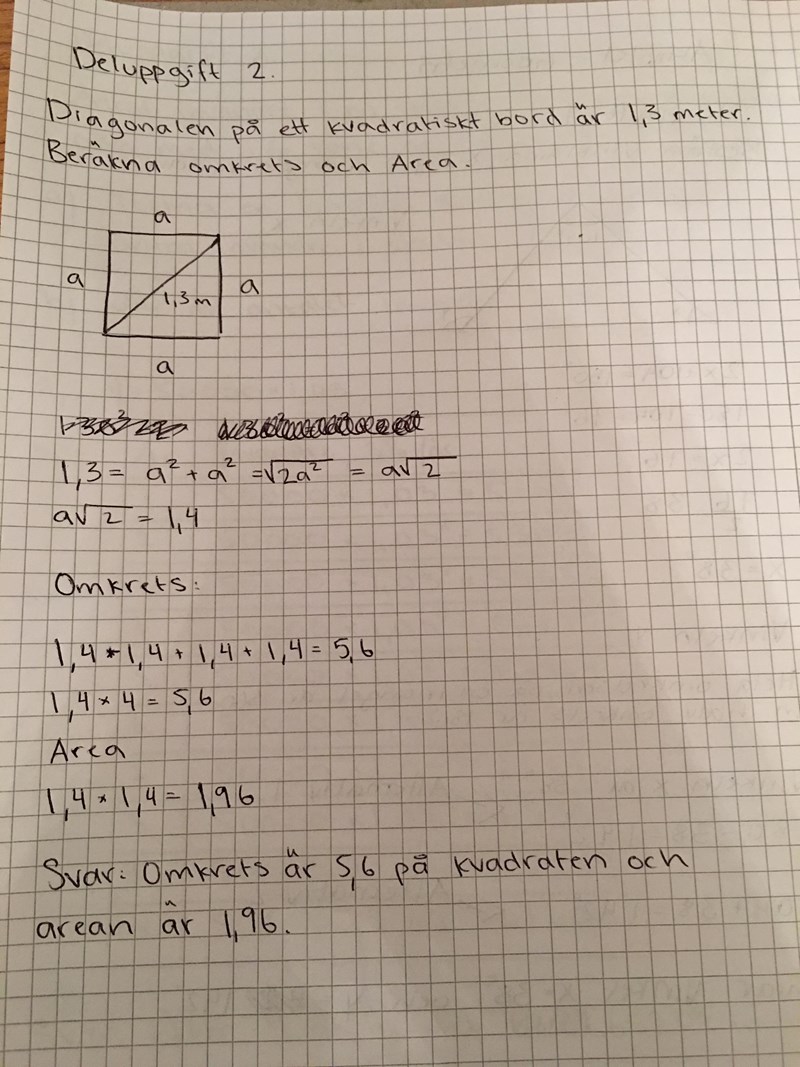 Deluppgift 2.
Diagonalen på ett kvadratiskt bord är 1,3 meter.
Beräkna omkrets och Area.
a
a
a
1,3 m
a
1,3 = a² + a² = √2a² = a√2
a√2 = 1,4
Omkrets:
1,4 + 1,4 + 1,4 + 1,4 = 5,6
1,4 × 4 = 5,6
Area
1,4 × 1,4 = 1,96
Svar: Omkrets är 5,6 på kvadraten och
arean är 1,96.